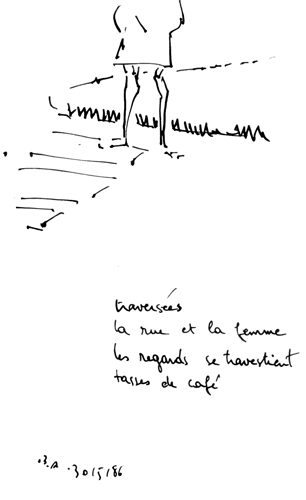 traversées
la rue et la femme
les regards se travestient
tasses de café
30/5/86